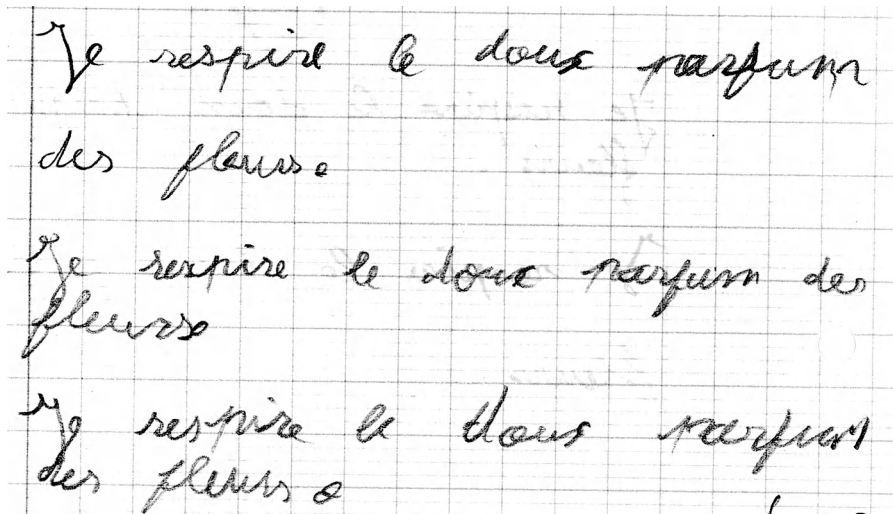 Je respire le doux parfum
des fleurs.
Je respire le doux parfum des
fleurs.
Je respire le doux parfum
des fleurs.